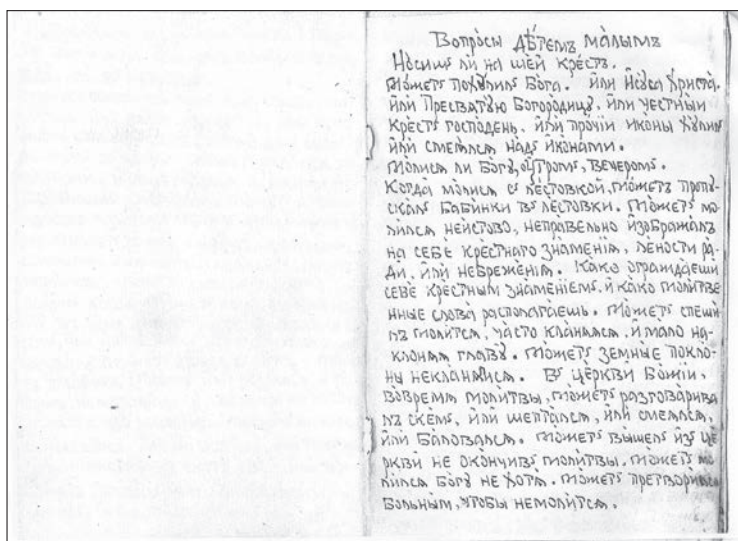 Вопросы дѣтемъ малымъ
Носишъ ли на шей крестъ.
Можетъ похулилъ Бога. или Исуса Христа.
или Пресвятую Богородицу. или честный
крестъ господень. или прочіи иконы хулилъ
или смеялся надъ иконами.
Молися ли Богу, оутромъ, вечеромъ.
Когда молися съ лестовкой, можетъ пропу-
скалъ бабинки въ лестовки. Можетъ мо
лился неистово, неправельно изображалъ
на себе крестнаго знаменія. лености ра-
ди. или небреженія. Како ограждаеши
себе крестным знаменіемъ. и како молитве
нные слова располагаешь. Можетъ спеши
лъ молится, часто кланялся, и мало на-
клонял главу. Можетъ земные покло-
ны некланяйся. Въ церкви божіи.
вовремя молитвы, можетъ разговарива
лъ скемъ, или шептался, или смеялся.
или баловался. можетъ вышелъ изъ це
ркви не окончивъ молитвы. можетъ мо
лился богу не хотя. можетъ претворялся
больным, чтобы немолится.